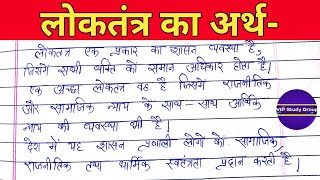 लोकतंत्र का अर्थ-
लोकतंत्र एक प्रकार का शासन व्यवस्था है,
जिसमें सभी व्यक्ति को समान अधिकार होता है।
एक अच्छा लोकतंत्र वह है जिसमें राजनीतिक
और सामाजिक न्याय के साथ-साथ आर्थिक
न्याय की व्यवस्था भी है।
देश में यह शासन प्रणाली लोगों को सामाजिक
राजनीतिक तथा धार्मिक स्वतंत्रता प्रदान करती है।
VIP Study Group